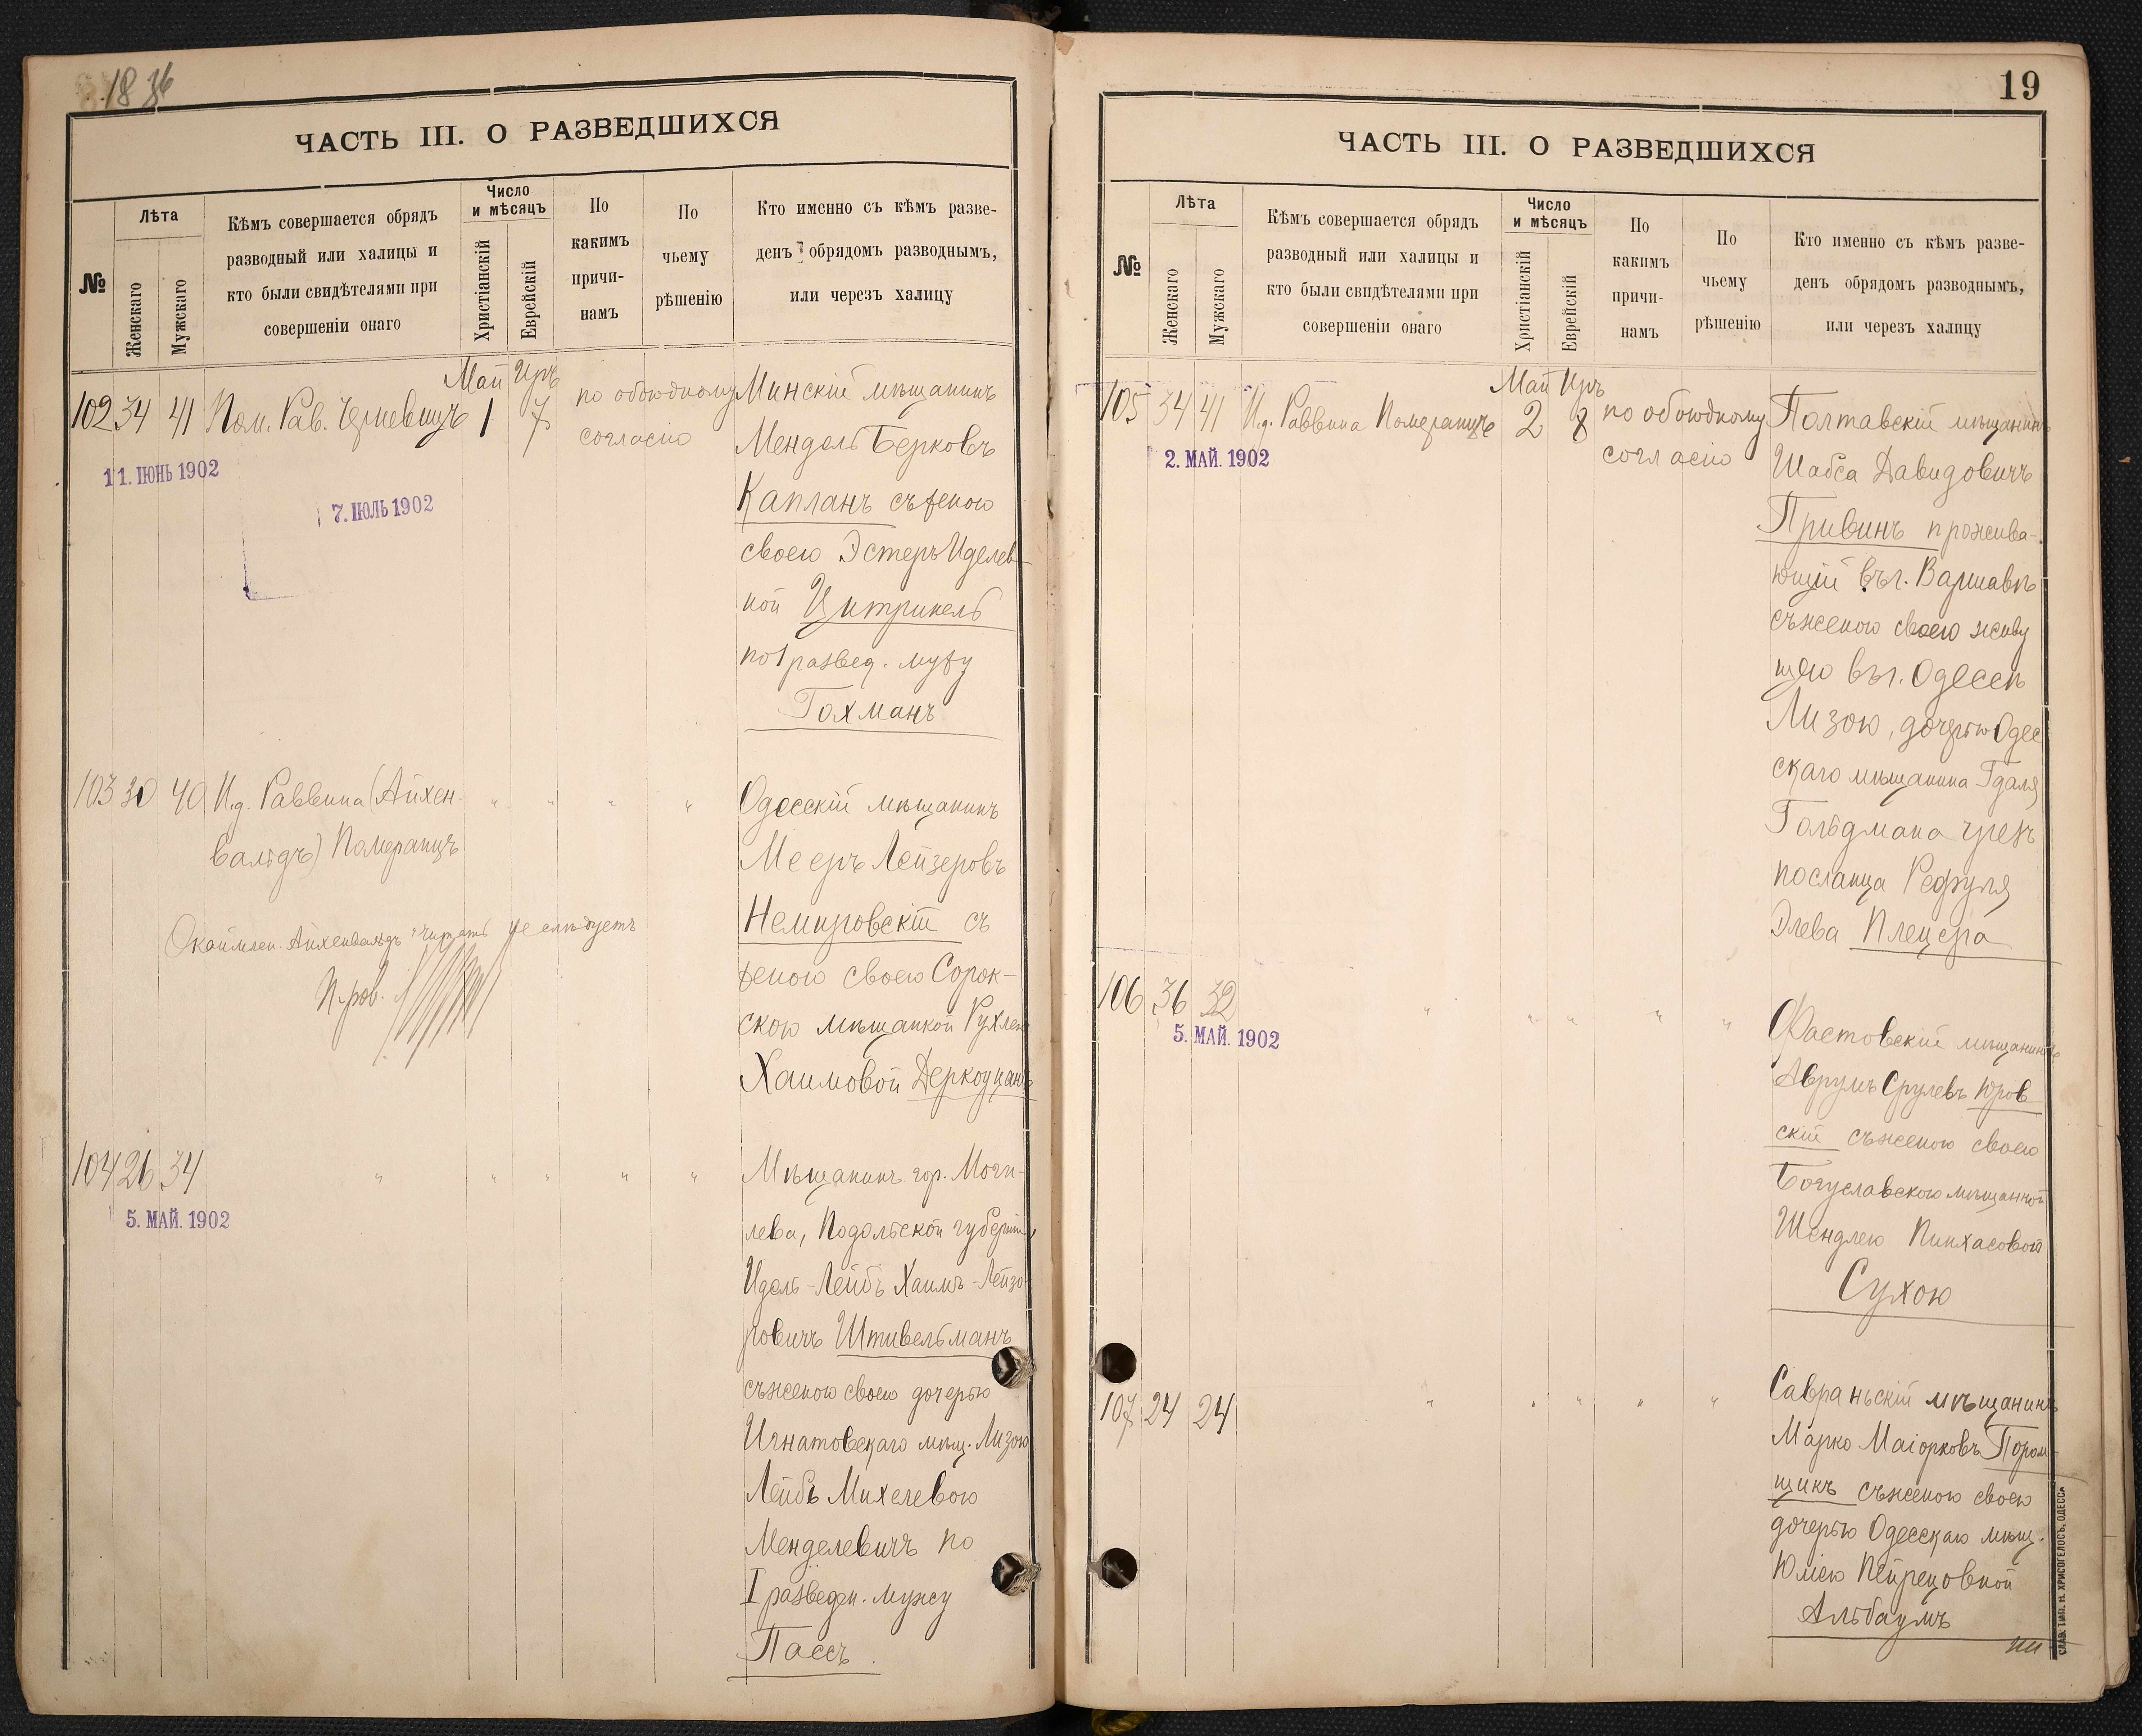 18
ЧАСТЬ III. О РАЗВЕДШИХСЯ
№
Лѣта
Женскаго
Мужскаго
Кѣмъ совершается обрядъ
разводный или халицы и
кто были свидѣтелями при
совершеніи онаго
Число
и мѣсяцъ
Христіанскій
Еврейскій
По
какимъ
причи-
намъ
По
чьему
рѣшенію
Кто именно съ кѣмъ разве-
денъ обрядомъ разводнымъ,
или черезъ халицу
Май Иръ
102 34 41 Пом. Рав. 1 7 по обоюдному
согласію
11. ІЮНЬ 1902
7. ІЮЛЬ 1902
Минскій мѣщанинъ
Мендель Берковъ
Капланъ съ женою
своею Эстеръ Иделев-
ной Цитринель
по 1 развед. мужу
Гохманъ
103 30 40 И.д. Раввина (Айхен-
вальдъ) Померанцъ
" " " "
Одесскій мѣщанинъ
Мееръ Лейзеровъ
Немировскій съ
женою своею Сорок-
скою мѣщанкой Рухлею
Хаимовой Деркоуцанъ
Окаймлен. Айхенвальдъ читать не слѣдуетъ
104 26 34
" " " " "
5. МАЙ. 1902
Мѣщанинъ гор. Моги-
лева, Подольской губерніи,
Идель-Лейбъ Хаимъ-Лейзо-
ровичъ Штивельманъ
съ женою своею дочерью
Игнатовскаго мѣщ. Лизою
Лейбъ Михелевою
Менделевичъ по
I разведен. мужу
Пассъ.
19
ЧАСТЬ III. О РАЗВЕДШИХСЯ
№
Лѣта
Женскаго
Мужскаго
Кѣмъ совершается обрядъ
разводный или халицы и
кто были свидѣтелями при
совершеніи онаго
Число
и мѣсяцъ
Христіанскій
Еврейскій
По
какимъ
причи-
намъ
По
чьему
рѣшенію
Кто именно съ кѣмъ разве-
денъ обрядомъ разводнымъ,
или черезъ халицу
Май Иръ
105 34 41 И.д. Раввина Померанцъ 2 8 по обоюдному
согласію
2. МАЙ. 1902
Полтавскій мѣщанинъ
Шабса Давидовичъ
Привинъ прожива-
ющій въ г. Варшавѣ
съ женою своею живу
щею въ г. Одессѣ
Лизою, дочерью Одес
скаго мѣщанина Гдаля
Гольдмана чрезъ
посланца Рефуля
Элева Плецера
106 36 32
" " " " "
5. МАЙ. 1902
Фастовскій мѣщанинъ
Аврумъ Срулевъ Юров
скій съ женою своею
Богуславскою мѣщанкой
Шендлею Пинхасовой
Сухою
107 24 24
" " " " "
Савраньскій мѣщанинъ
Марко Маіорковъ Пором-
щикъ съ женою своею
дочерью Одесскаго мѣщ.
Альбаумъ
СЛАВ. ТИП. Н. ХРИСОГЕЛОСЪ, ОДЕССА